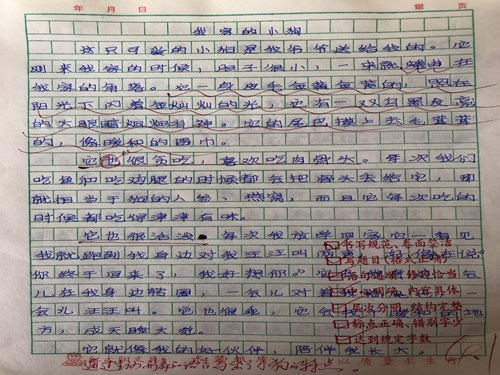 年 月 日 第 页
我家的小狗
这只可爱的小狗是我爷爷送给我的。它
刚来我家的时候,胆子很小,一来就蜷曲在
我家的角落。它一身皮毛金黄金黄的,照在
阳光下闪着金灿灿的光,它有一双乌黑发亮
的大眼睛炯炯有神。它的尾巴摸上去毛茸茸
的,像暖和的围巾。
它也很贪吃,喜欢吃肉骨头。每次我们
吃鱼和吃鸡腿的时候都会把骨头丢给它,那
就相当于狗的人参、燕窝,而且它每次吃的
时候都吃得津津有味。
它也很活泼。每次我放学回家它一看见
我就跑到我身边对我汪汪叫
你终于回来了,我好想你
儿在我身边转圈,一会儿对着
会儿汪汪叫。它也很乖,它会
方,成天睡大觉。
它就像我的好伙伴,陪伴我长大。
书写规范、卷面整洁
写题目(格式正确)
语句通顺、修辞恰当
中心明确、内容具体
层次分明、结构完整
标点正确、错别字少
达到规定字数
质量要求